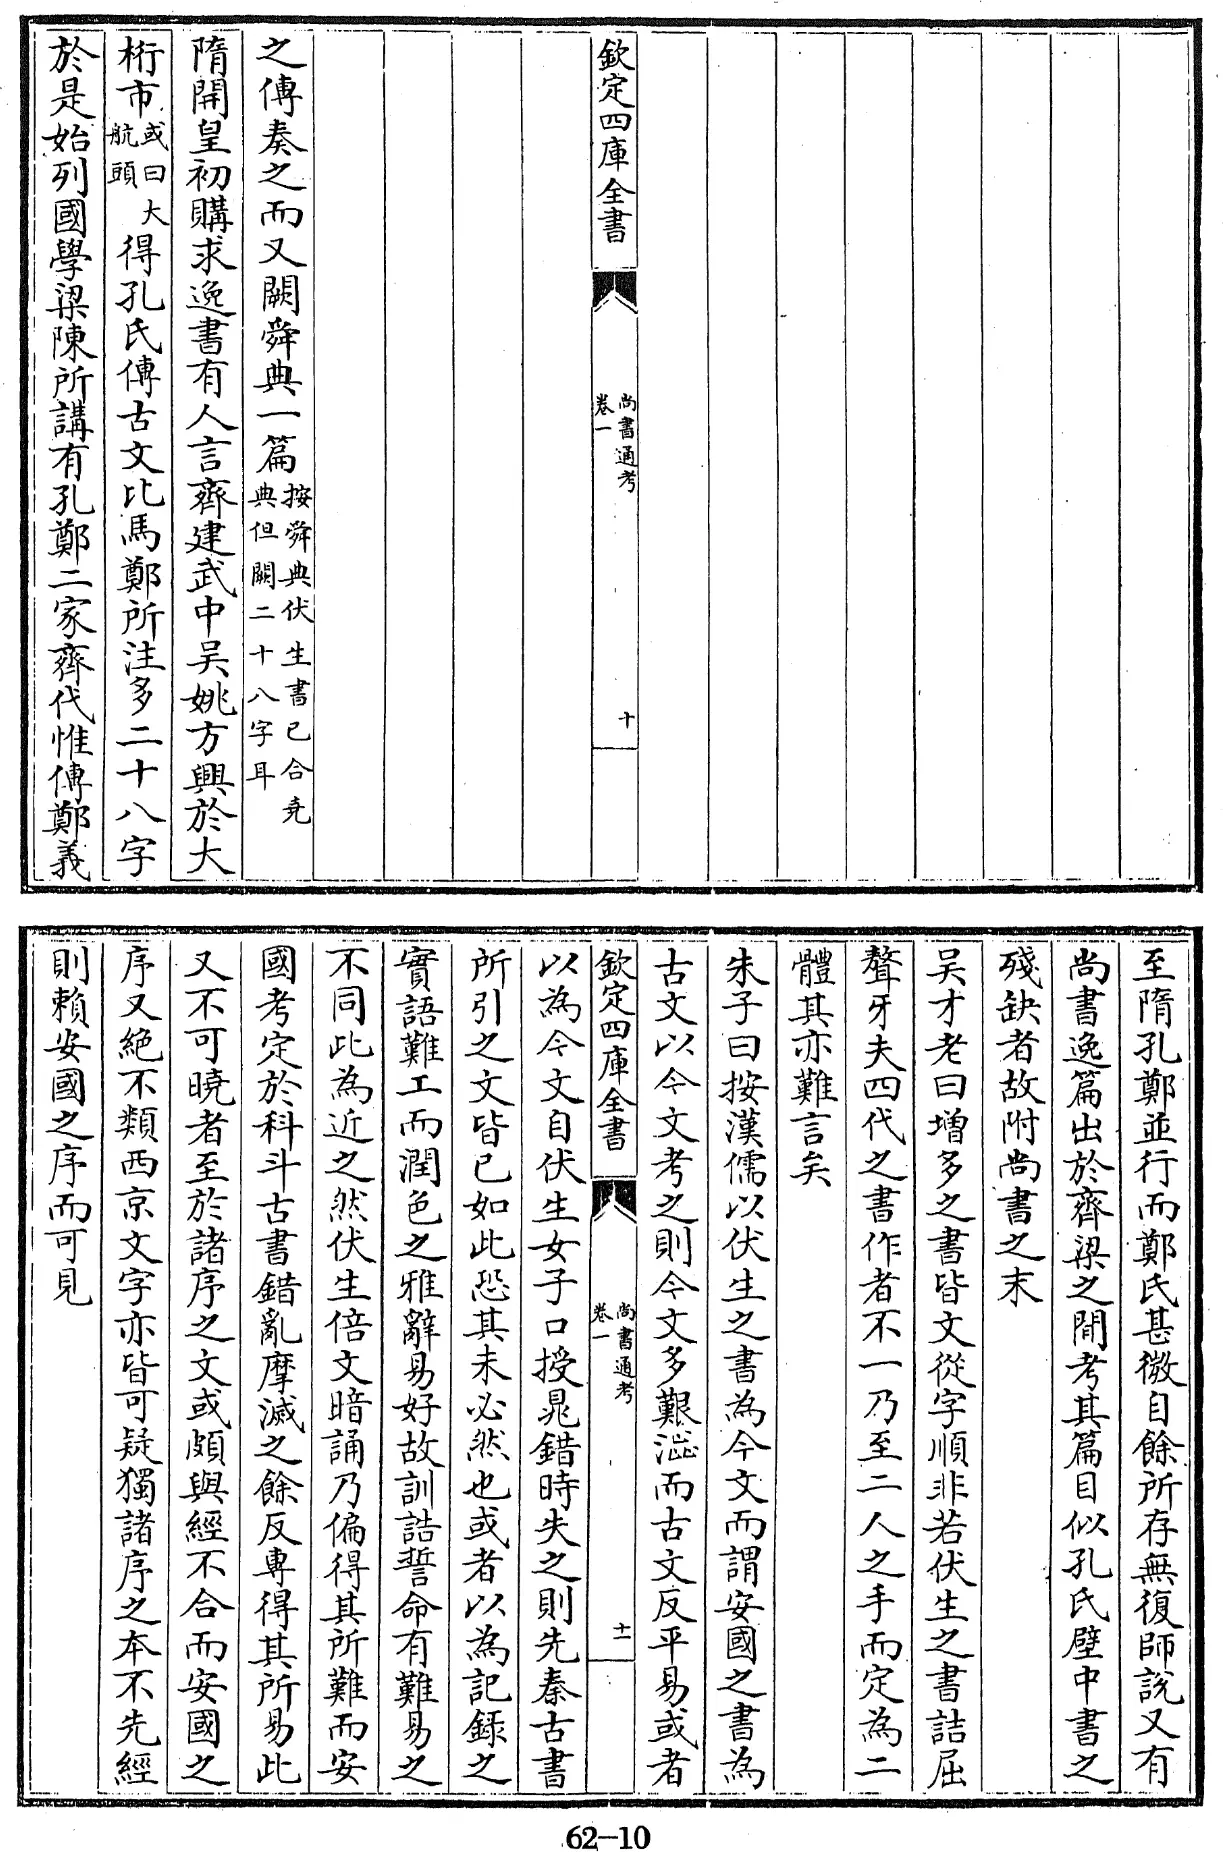 欽定四庫全書
尚書通考
卷一
十
之傳奏之而又闕舜典一篇按舜典伏生書已合堯
典但闕二十八字耳
隋開皇初購求逸書有人言齊建武中吳姚方興於大
桁市或曰大
航頭
得孔氏傳古文比馬鄭所注多二十八字
於是始列國學梁陳所講有孔鄭二家齊代惟傳鄭義
至隋孔鄭並行而鄭氏甚微自餘所存無復師說又有
尚書逸篇出於齊梁之間考其篇目似孔氏壁中書之
殘缺者故附尚書之末
吳才老曰增多之書皆文從字順非若伏生之書詰屈
聱牙夫四代之書作者不一乃至二人之手而定為二
體其亦難言矣
朱子曰按漢儒以伏生之書為今文而謂安國之書為
古文以今文考之則今文多艱澁而古文反平易或者
欽定四庫全書
尚書通考
卷一
十一
以為今文自伏生女子口授晁錯時失之則先秦古書
所引之文皆已如此恐其未必然也或者以為記錄之
實語難工而潤色之雅辭易好故訓誥誓命有難易之
不同此為近之然伏生倍文暗誦乃偏得其所難而安
國考定於科斗古書錯亂摩滅之餘反專得其所易此
又不可曉者至於諸序之文或頗與經不合而安國之
序又絕不類西京文字亦皆可疑獨諸序之本不先經
則賴安國之序而可見
62-10